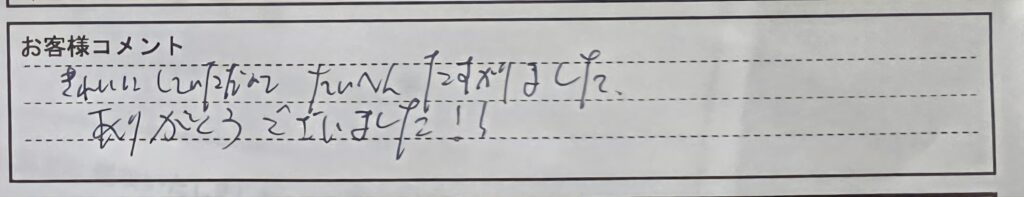 お客様コメント
きれいにしていただいて たいへん たすかりました、
ありがとうございました!!